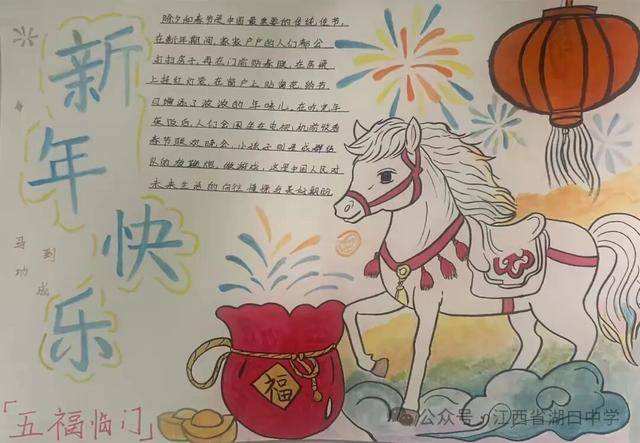 新年快乐
除夕和春节是中国最重要的传统佳节,
在新年期间,家家户户的人们都会
打扫房子,再在门前贴春联,在房檐
上挂红灯笼,在窗户上贴窗花,给节
日增添了浓浓的年味儿,在吃完年
夜饭后,人们会围坐在电视机前
春节联欢晚会,小孩子则是成群结
队的放鞭炮,做游戏,这是中国人民对
未来生活的向往 憧憬与美好期盼
马到功成
福
「五福临门」
公众号·江西省湖口中学